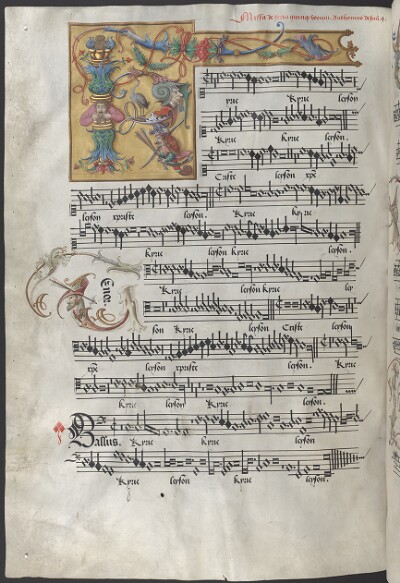 Missa de
yrie Kyrie leyson
Kyrie kyrie leyson.
Criste leyson xpe
leyson xpriste leyson. Kyrie kyrie
kyrie leyson kyrie leyson.
Tenor. Kyrie leyson kyrie ley
son Kyrie leyson Criste leyson
xpe leyson xpriste leyson. Kyrie
kyrie leyson Kyrie leyson.
Bassus. Kyrie kyrie leyson
Kyrie leyson kyrie leyson.